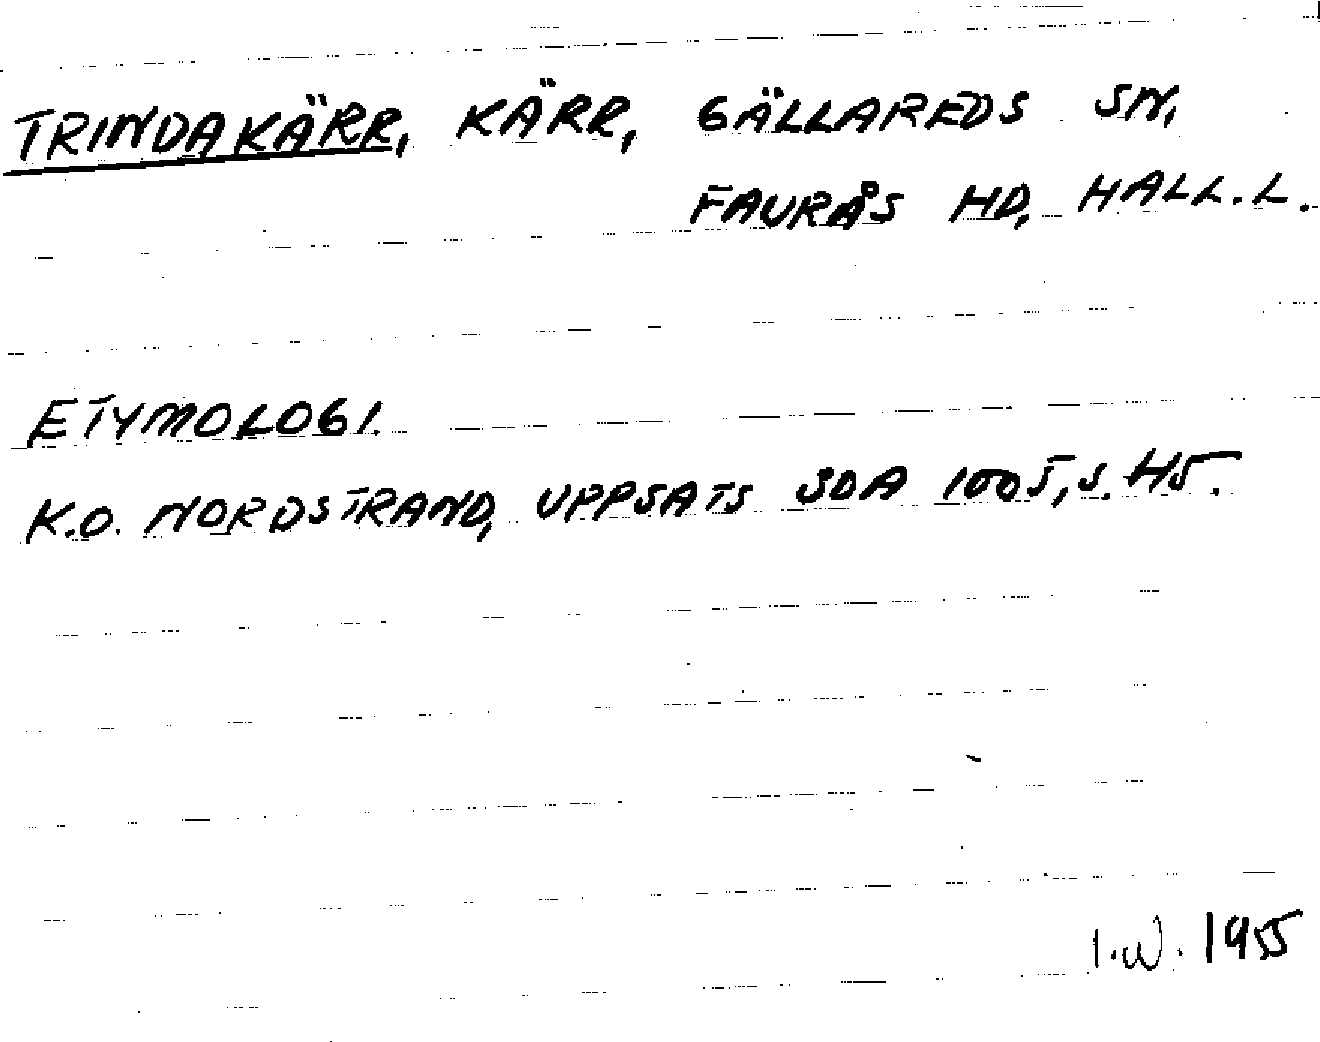 TRINDAKÄRR, KÄRR, GÄLLAREDS SN,
FAURÅS HD, HALL.L.
ETYMOLOGI.
K.O. NORDSTRAND, UPPSATS SOA 1005, S. 45.
I.W. 1955